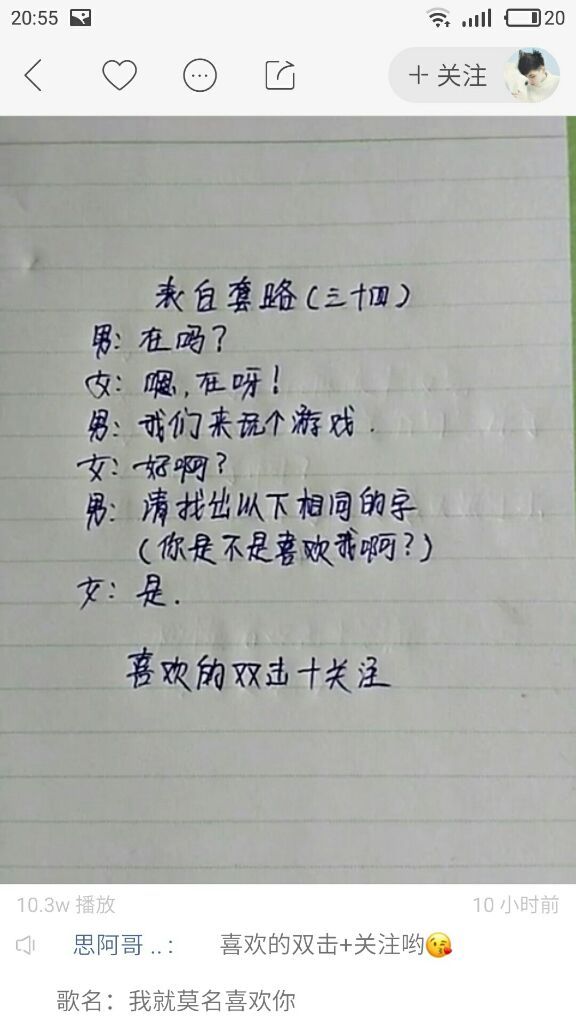 20:55
20
+ 关注
表白套路(三十四)
男: 在吗?
女: 嗯,在呀!
男: 我们来玩个游戏.
女: 好啊?
男: 请找出以下相同的字
(你是不是喜欢我啊?)
女: 是.
喜欢的双击十关注
10.3w 播放
10 小时前
思阿哥 ..: 喜欢的双击+关注哟😘
歌名: 我就莫名喜欢你